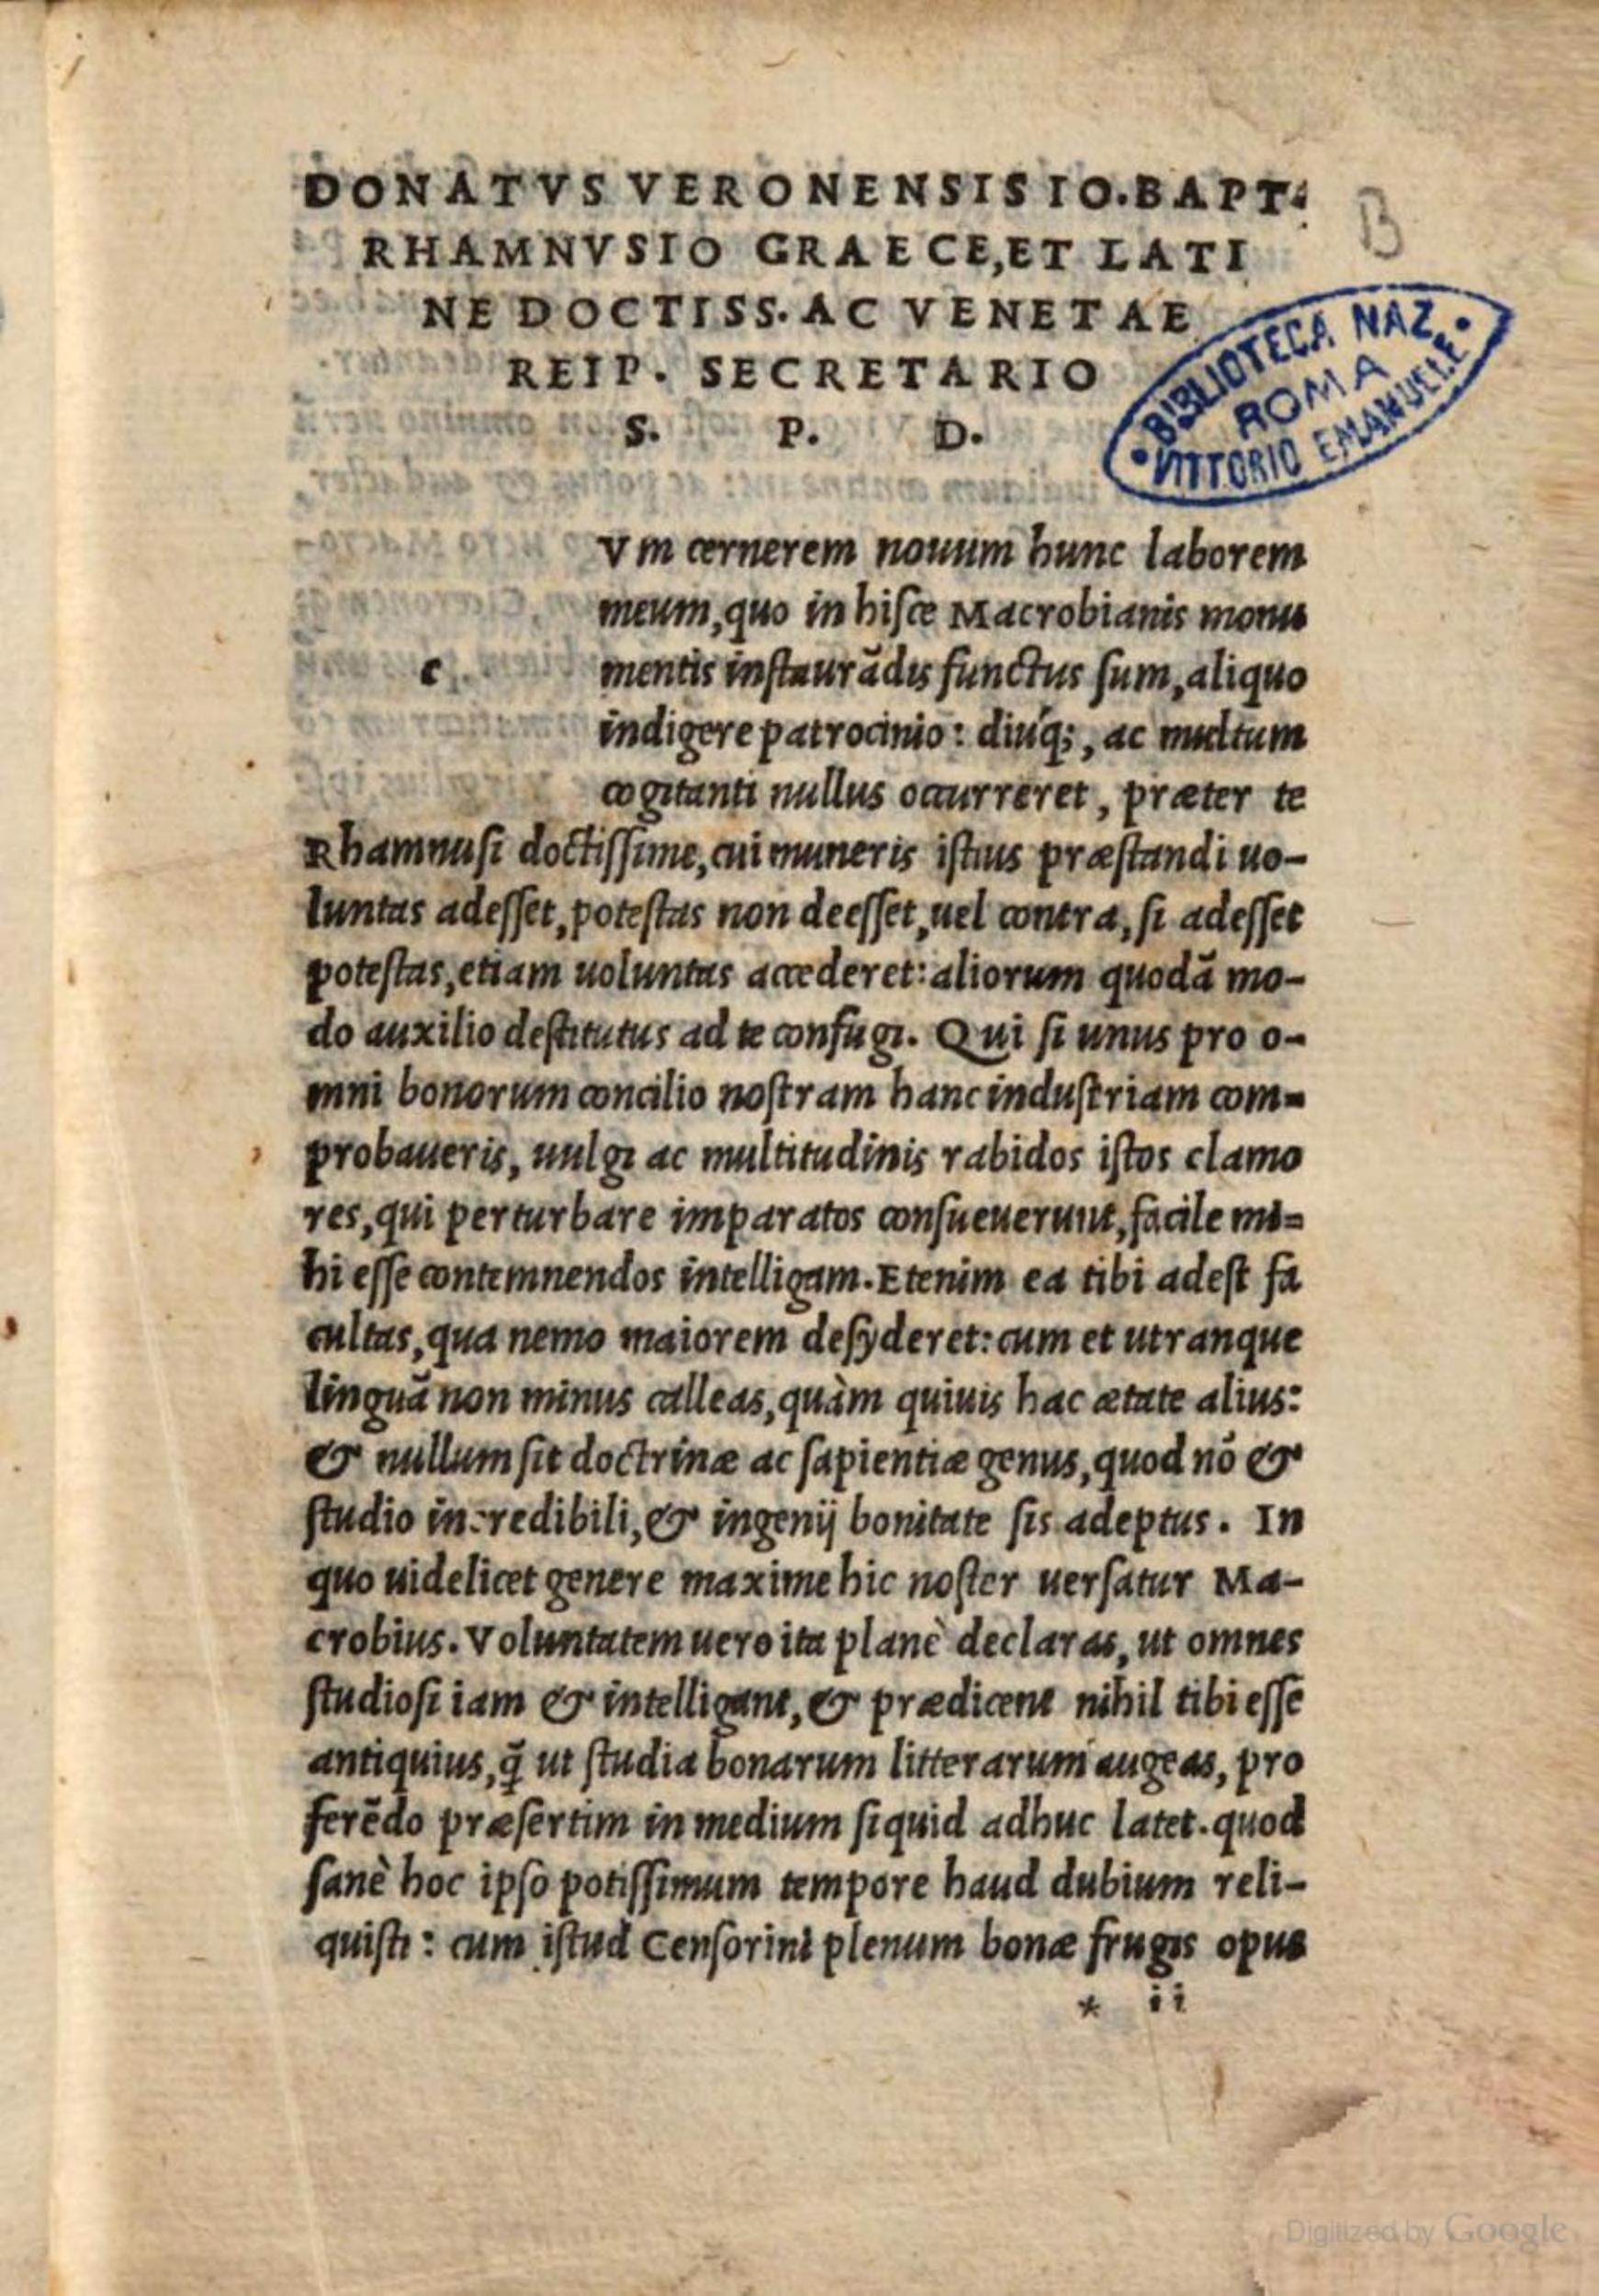 DONATVS VERONENSIS IO.BAPT.
RHAMNVSIO GRAECE,ET LATI
NE DOCTISS.AC VENETAE
REIP. SECRETARIO
S. P. D.
B
BIBLIOTECA NAZ.
ROMA
VITTORIO EMANUELE
c
Vm cernerem nouum hunc laborem
meum,quo in hiſce Macrobianis monu
mentis inſtaurādis functus ſum,aliquo
indigere patrocinio: diuq́;, ac multum
cogitanti nullus occurreret, præter te
Rhamnuſi doctiſſime,cui muneris iſtius præſtandi uo-
luntas adeſſet,poteſtas non deeſſet,uel contra, ſi adeſſet
poteſtas,etiam uoluntas accederet:aliorum quodā mo-
do auxilio deſtitutus ad te confugi. Qui ſi unus pro o-
mni bonorum concilio noſtram hanc induſtriam com-
probaueris, uulgi ac multitudinis rabidos iſtos clamo
res,qui perturbare imparatos conſueuerunt,facile mi-
hi eſſe contemnendos intelligam.Etenim ea tibi adeſt fa
cultas,qua nemo maiorem deſyderet:cum et utranque
linguā non minus calleas,quàm quiuis hac ætate alius:
& nullum ſit doctrinæ ac ſapientiæ genus,quod nō &
ſtudio incredibili,& ingenij bonitate ſis adeptus. In
quo uidelicet genere maxime hic noſter uerſatur Ma-
crobius.Voluntatem uero ita planè declaras, ut omnes
ſtudioſi iam & intelligant,& prædicent nihil tibi eſſe
antiquius,q̃ ut ſtudia bonarum litterarum augeas, pro
ferēdo præſertim in medium ſiquid adhuc latet.quod
ſanè hoc ipſo potiſſimum tempore haud dubium reli-
quiſti: cum iſtud Cenſorini plenum bonæ frugis opus
* ii
Digitized by Google